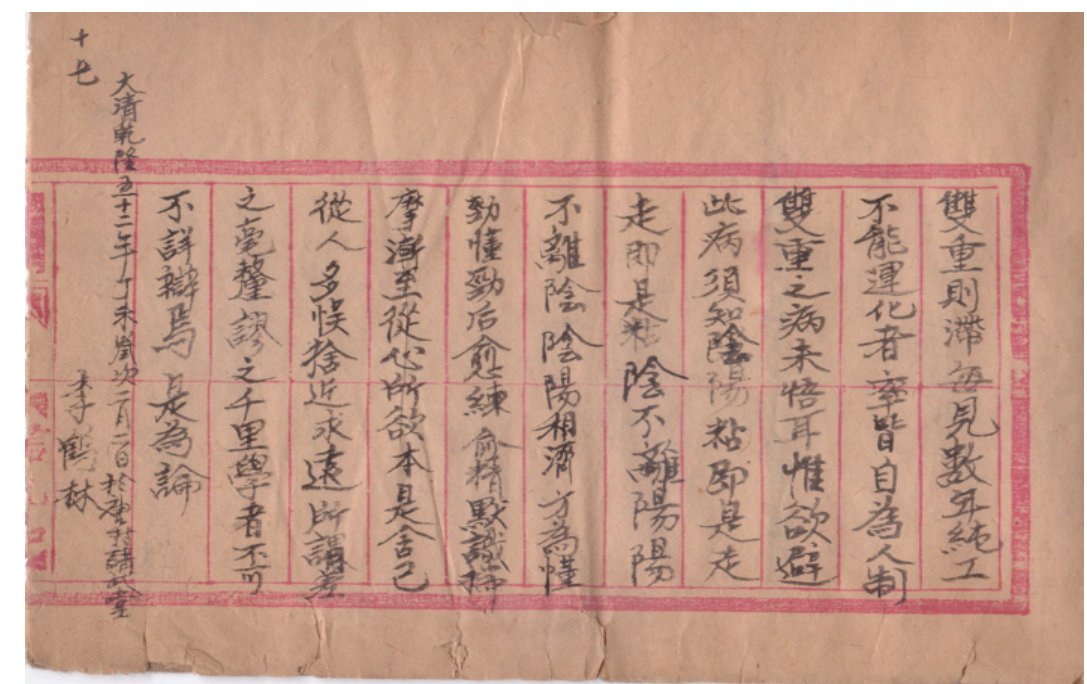 雙重則滯每見數年純工
不能運化者率皆自為人制
雙重之病未悟耳惟欲避
此病須知陰陽粘即是走
走即是粘陰不離陽陽
不離陰陰陽相濟方為懂
勁懂勁后愈練愈精默識揣
摩漸至從心所欲本是舍己
從人多悮捨近求遠所謂差
之毫釐謬之千里學者不可
不詳辯焉 是為論
大清乾隆五十二年丁未歲次二月二日於唐村講武堂
李鶴林
十七